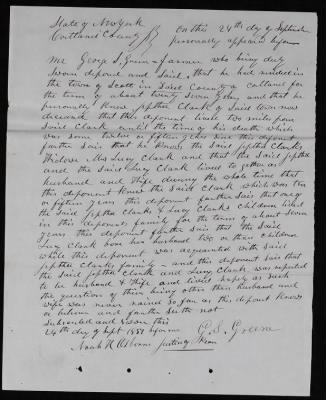 State of New York
Cortland County ss
on this 24th day of September
personally appeared before
me George S. Green a farmer who being duly
Sworn deposed and Said, that he had resided in
the town of Scott in Said County a citizen for
the term of about twenty Seven years and that he
personally knew Jeptha Clark of Said town now
deceased that this deponent lived two miles from
Said Clark until the time of his death which
was Some twelve or fifteen years since this deponent
further Said that he knows the Said Jeptha Clarks
Widow Mrs Lucy Clark and that the Said Jeptha
and the Said Lucy Clark lived together as
husband and Wife during the whole time that
this deponent knew the Said Clark which was ten
or fifteen years this deponent further Said that one of
the Said Jeptha Clarks & Lucy Clarks Children lived
in this deponents family for the term of about Seven
years this deponent further Said that the Said
Lucy Clark bore her husband two or three children
while this deponent was acquainted with Said
Jeptha Clarks family - and this deponent Said that
the Said Jeptha Clark and Lucy Clark was reputed
to be husband & Wife and lived happily as such
the question of their being other than husband and
wife was never raised So far as this deponent knows
or believes and further Saith not
Subscribed and Sworn this
24th day of Sept 1858 before
G. S. Green
Noah H Osborne Justice Peace